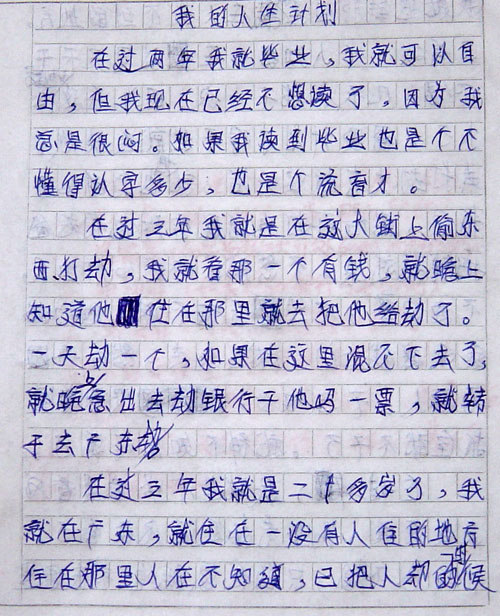 我的人生计划
在过两年我就毕业，我就可以自
由，但我现在已经不想读了，因为我
总是很闷。如果我读到毕业也是个不
懂得认字多少，也是个流盲才。
在过三年我就是在这大街上偷东
西打劫，我就看那一个有钱，就晚上
知道他住在那里就去把他给劫了。
一天劫一个，如果在这里混不下去了，
就晚上出去劫银行干他吗一票，就转
于去广东
在过三年我就是二十多岁了，我
就在广东，就住在一没有人住的地方
住在那里人在不知道，已把人劫的候